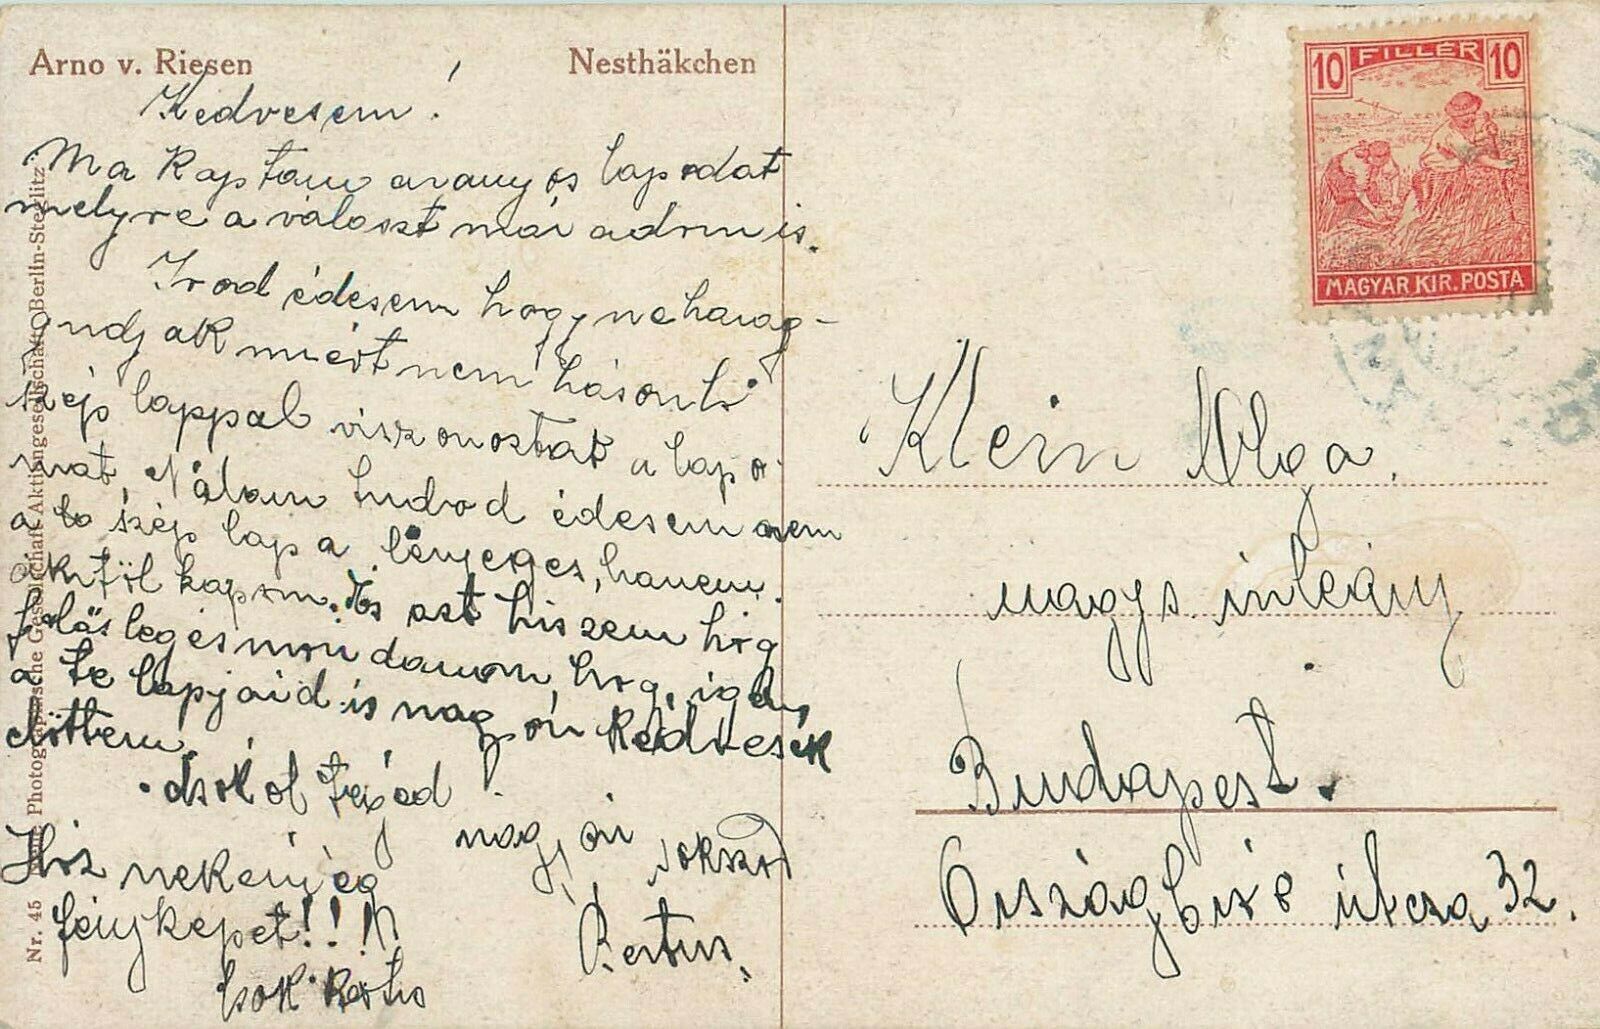 Arno v. Riesen
Nesthäkchen
Kedvesem!
Ma kaptam aranyos lapodat
melyre a választ már adom is.
Irod édesem hogy ne harag-
gudjak miért nem hásonló
szép lappal viszonoztad a lapo-
mat. Nálam tudod édesem nem
a szép lap a lényeges, hanem
akitől kapom. És azt hiszem hog
fölösleges mondanom, hog, igen
a te lapjaid is nagyon kedvesek
előttem.
Csókol téged
nagyon sokszor
Bertus.
Hoz nekem ég
fényképet!!!
Csók Bertus
Nr. 45
Photographische Gesellschaft Aktiengesellschaft Berlin-Steglitz
10 FILLÉR 10
MAGYAR KIR. POSTA
Klein Olga.
nagys. úrleány
Budapest.
Országbiró útcza 32.